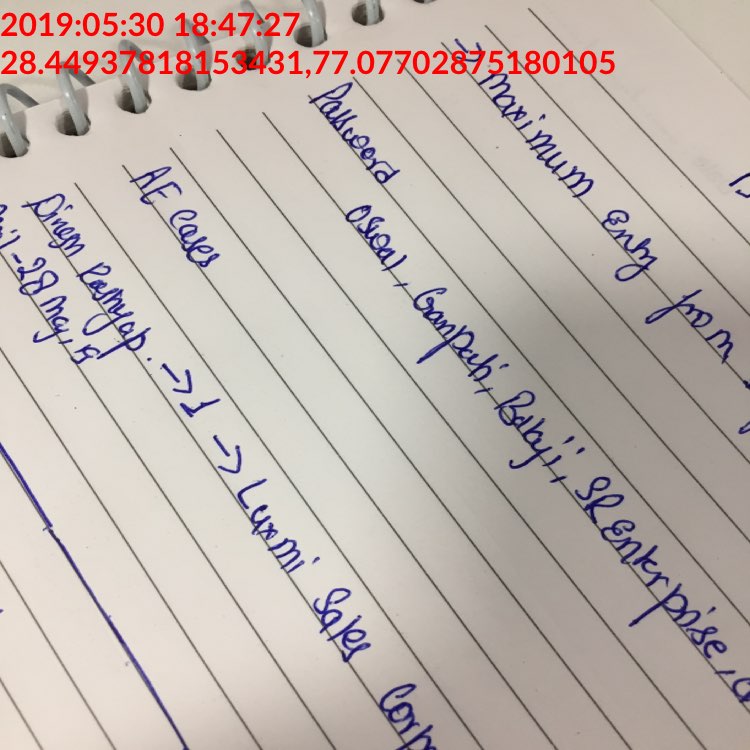 2019:05:30 18:47:27
28.44937818153431,77.07702875180105
→ Maximum Entry from
Password
Oswal, Ganpati, Balaji, SR Enterprise,
AE Cases
→ 1 → Luxmi Sales
- 28 May, 19